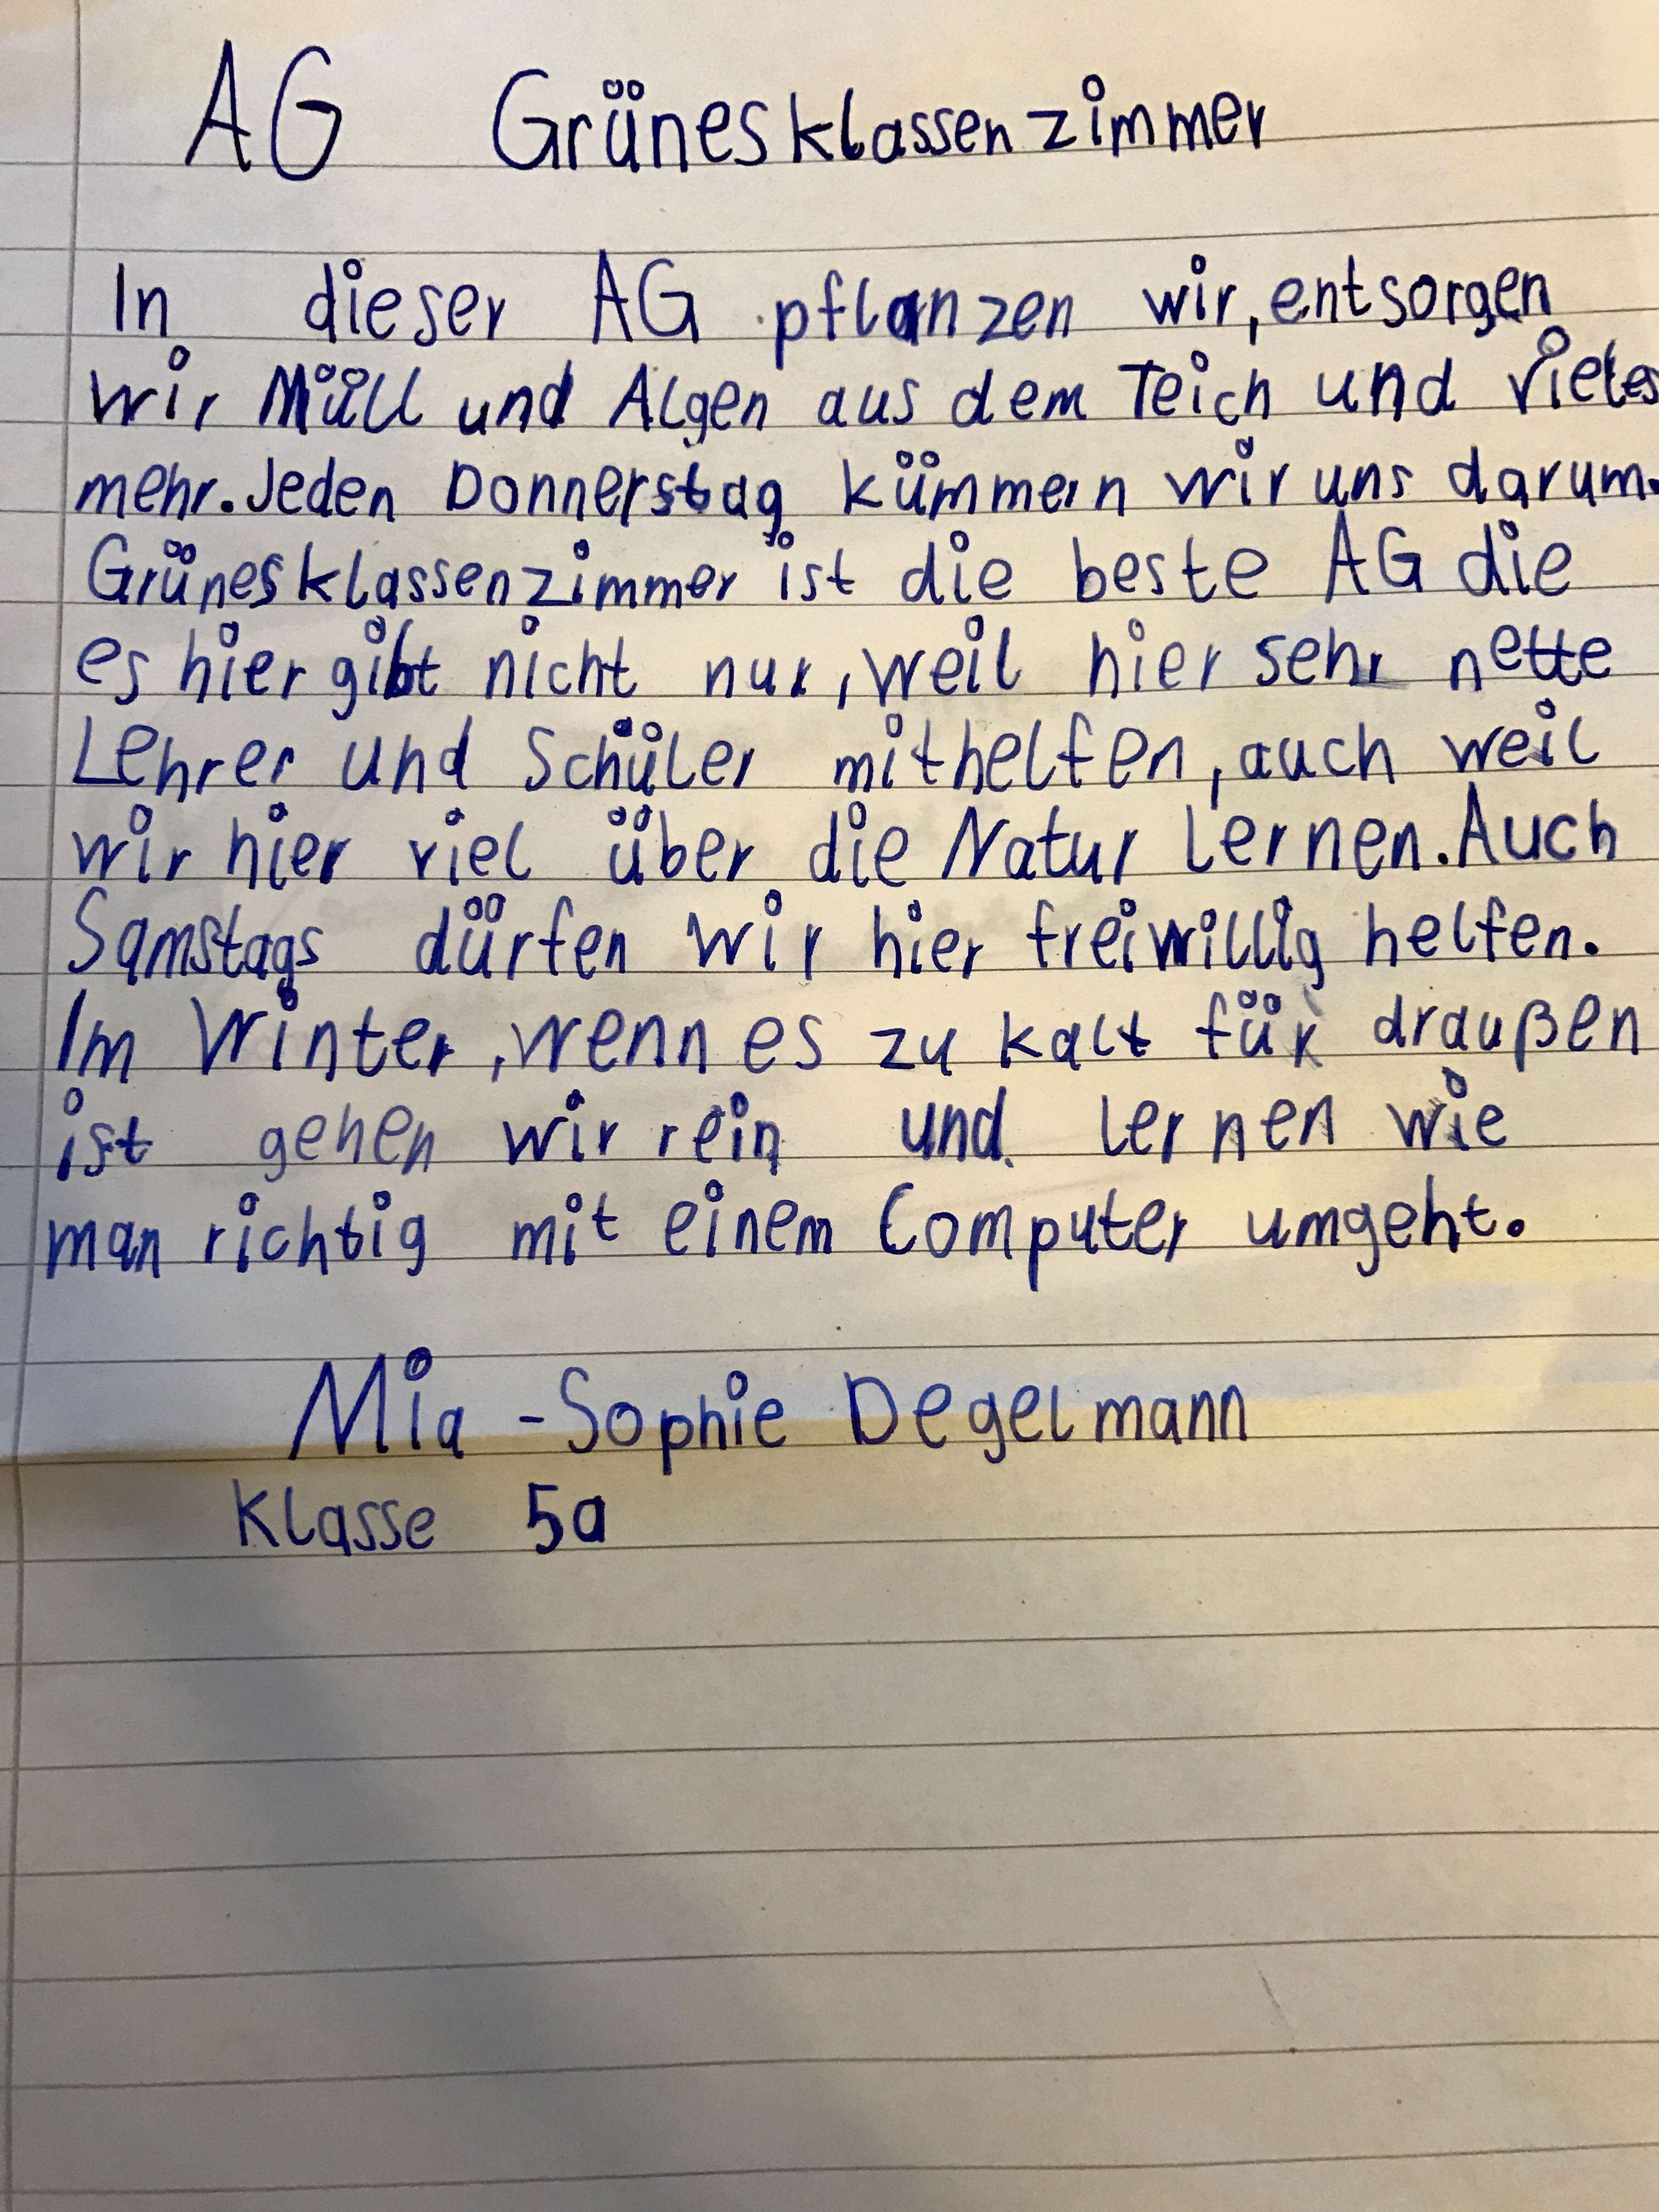 AG Grünesklassenzimmer
In dieser AG pflanzen wir, entsorgen
wir Müll und Algen aus dem Teich und vieles
mehr. Jeden Donnerstag kümmern wir uns darum.
Grünesklassenzimmer ist die beste AG die
es hier gibt nicht nur, weil hier sehr nette
Lehrer und Schüler mithelfen, auch weil
wir hier viel über die Natur lernen. Auch
Samstags dürfen wir hier freiwillig helfen.
Im Winter, wenn es zu kalt für draußen
ist gehen wir rein und lernen wie
man richtig mit einem Computer umgeht.
Mia-Sophie Degelmann
Klasse 5a